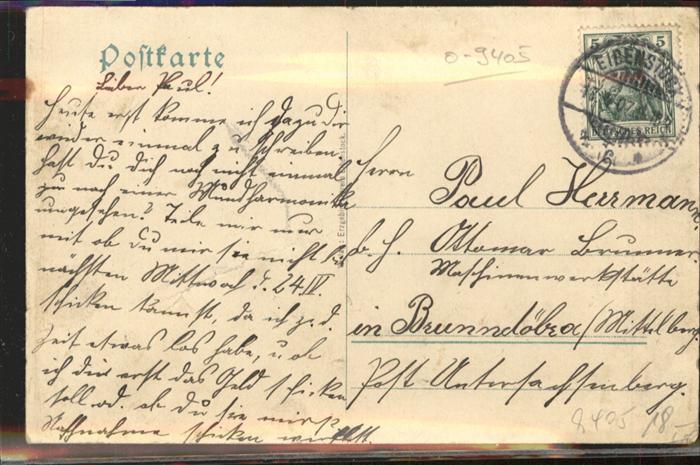 Postkarte
Lieber Paul!
Heute erst komme ich dazu dir
wieder einmal zu schreiben
hast Du Dich noch nicht einmal
zu nach einer Mundharmonika
umgesehen? Teile mir nur
mit ob du mir sie nicht bis
nächsten Mittwoch d. 24.IV.
schicken kannst, da ich z. d.
Zeit etwas los habe, u. ob
ich dir erst das Geld schicken
soll od. ob du sie mir p.
Nachnahme schicken willst.
0-9405
5 5
EIBENSTOCK
DEUTSCHES REICH
Herrn
Paul Herrmann,
b. H. Ottomar Brunner
Maschinenwerkstätte
in Brunndöbra/Mittelberg.
Post Untersachsenberg.
9405 18